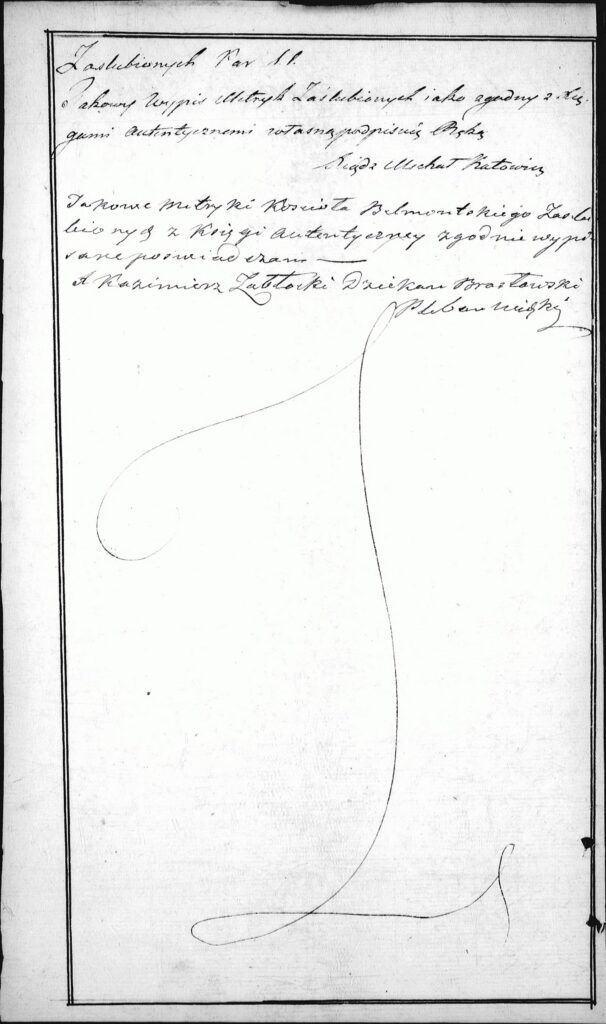 Zaslubionych Par 11.
Takowy Wypis Metryk Zaślubionych iako zgodny z Xię-
gami Autentycznemi własną podpisuię Ręką
Xiądz Michał Katowicz
Takowe Metryki Kościoła Belmontskiego Zaslu-
bionych z Księgi Autentyczney zgodnie wypi-
sane poswiadczam —
X Kazimierz Zabłocki Dziekan Brasławski
Pleban